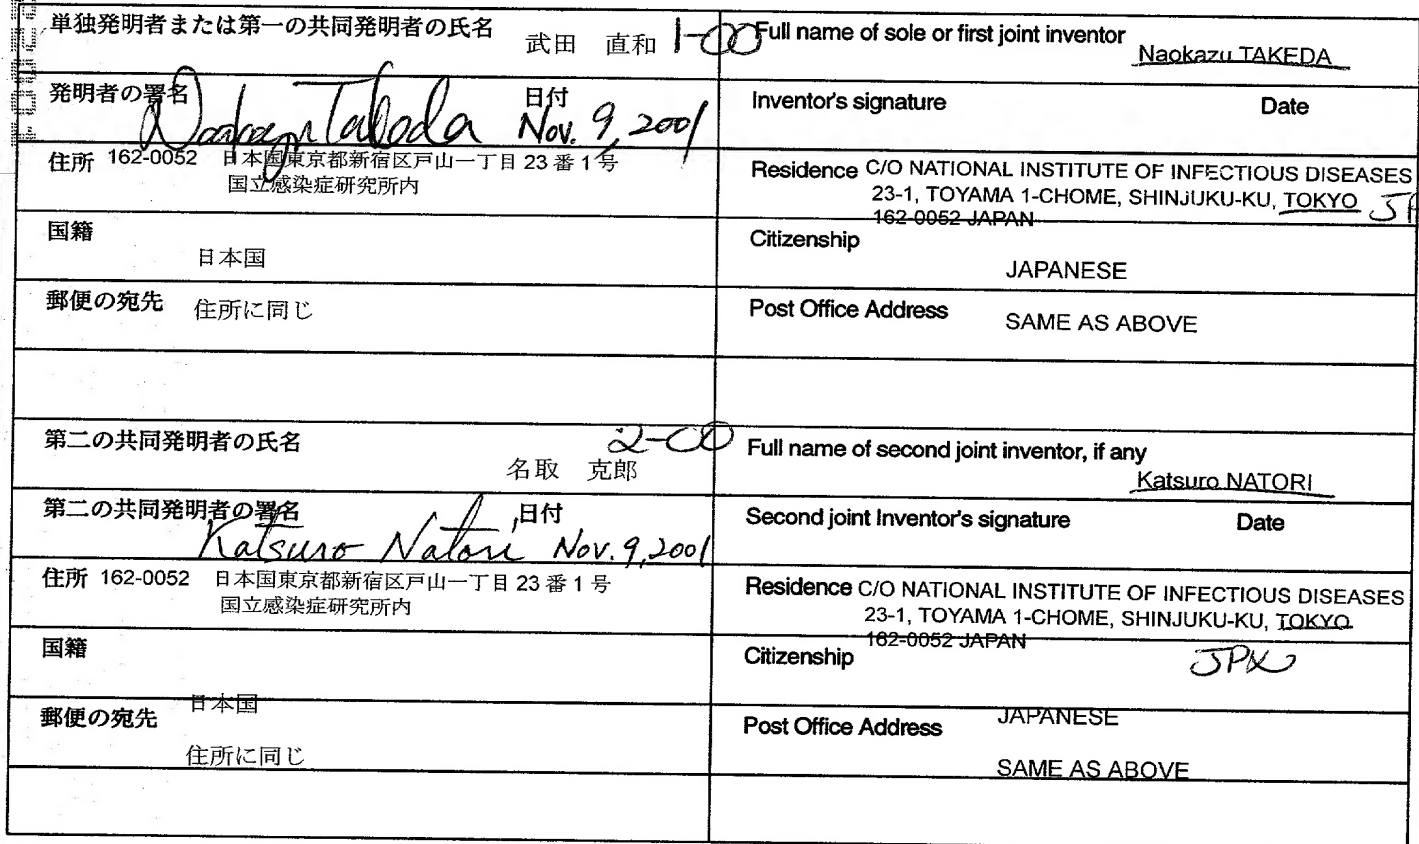 単独発明者または第一の共同発明者の氏名 武田 直和 1-00
Full name of sole or first joint inventor
Naokazu TAKEDA
発明者の署名 日付
Naokazu Takeda Nov. 9, 2001
Inventor's signature Date
住所 162-0052 日本国東京都新宿区戸山一丁目 23 番 1 号
国立感染症研究所内
Residence C/O NATIONAL INSTITUTE OF INFECTIOUS DISEASES
23-1, TOYAMA 1-CHOME, SHINJUKU-KU, TOKYO
162-0052 JAPAN
国籍
日本国
Citizenship
JAPANESE
郵便の宛先 住所に同じ
Post Office Address SAME AS ABOVE
第二の共同発明者の氏名 2-00
名取 克郎
Full name of second joint inventor, if any
Katsuro NATORI
第二の共同発明者の署名 日付
Katsuro Natori Nov. 9, 2001
Second joint Inventor's signature Date
住所 162-0052 日本国東京都新宿区戸山一丁目 23 番 1 号
国立感染症研究所内
Residence C/O NATIONAL INSTITUTE OF INFECTIOUS DISEASES
23-1, TOYAMA 1-CHOME, SHINJUKU-KU, TOKYO
162-0052 JAPAN
国籍
日本国
Citizenship JPX
JAPANESE
郵便の宛先
住所に同じ
Post Office Address
SAME AS ABOVE